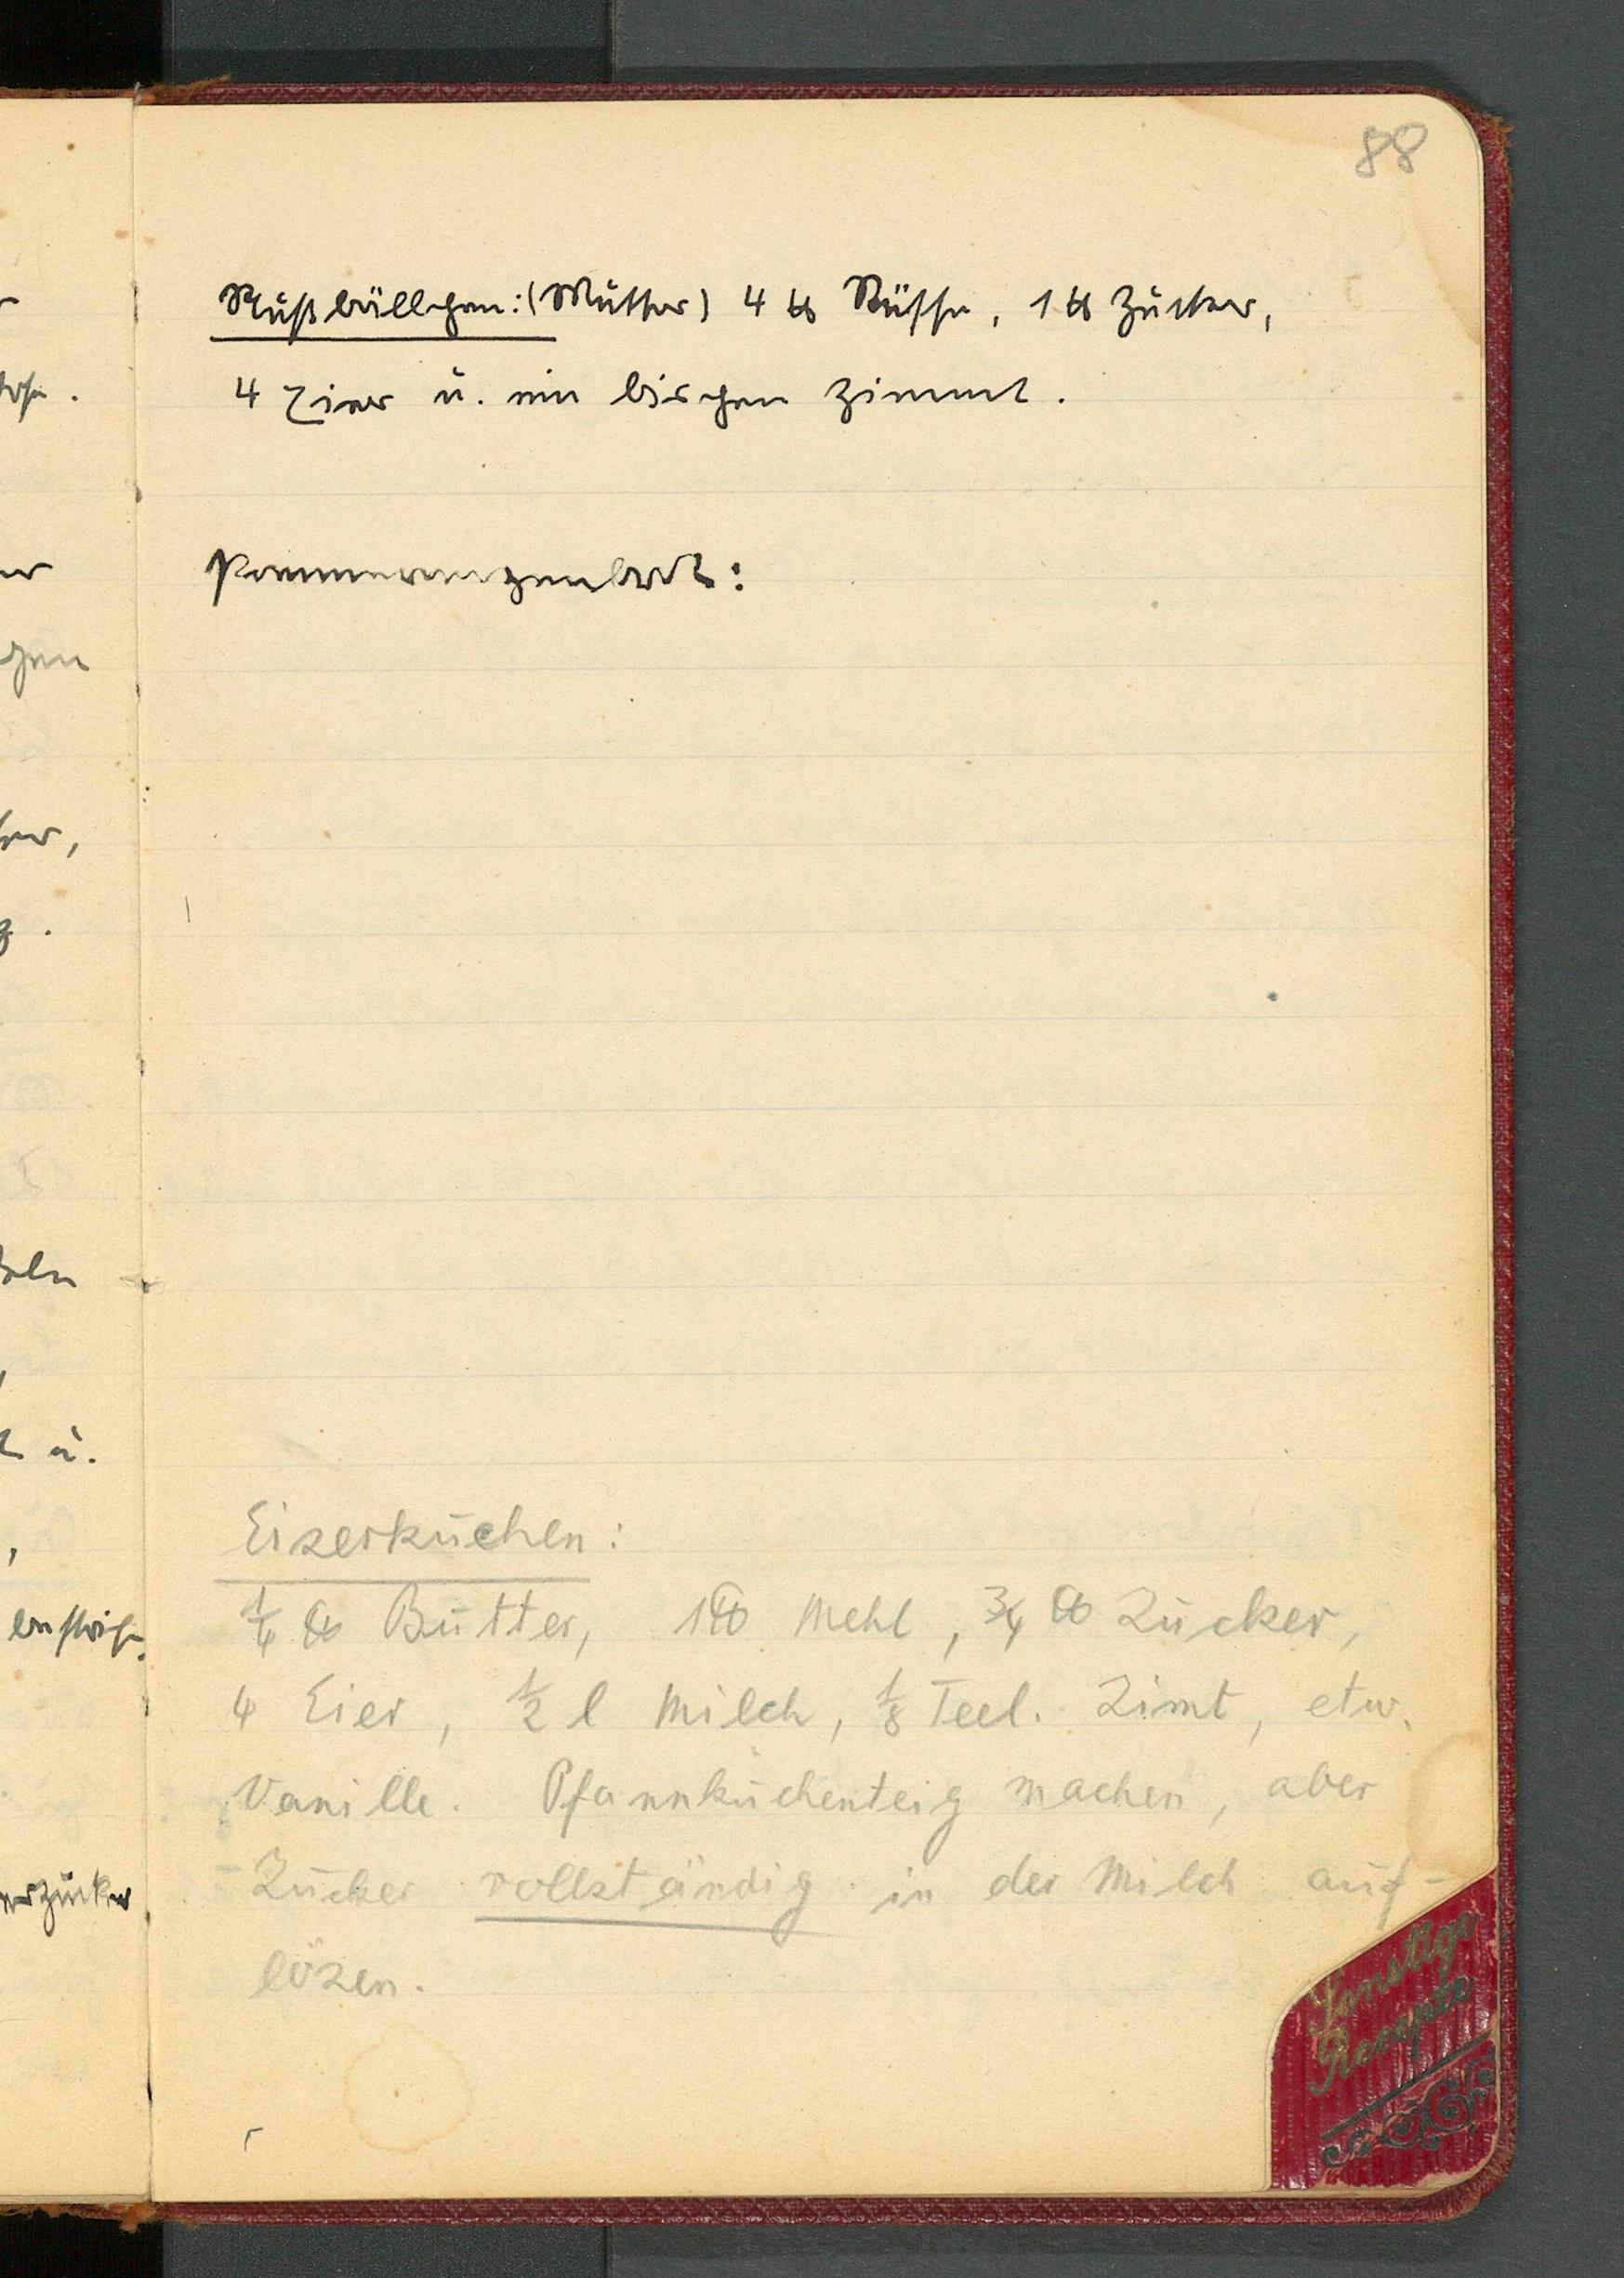 88
Nußbällchen: (Mutter) 4 ℔ Nüsse, 1 ℔ Zucker,
4 Eier u. ein bischen Zimmt.
Pommeranzenbrot:
Eiserkuchen:
1/4 ℔ Butter, 1 ℔ Mehl, 3/4 ℔ Zucker,
4 Eier, 1/2 l Milch, 1/8 Teel. Zimt, etw.
Vanille. Pfannkuchenteig machen, aber
Zucker vollständig in der Milch auf-
lösen.
Sonstige
Recepte